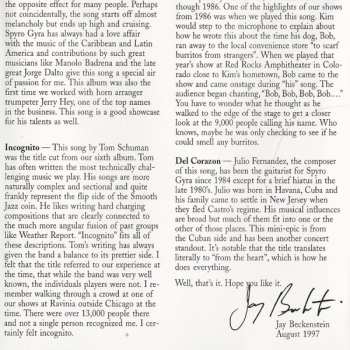 the opposite effect for many people. Perhaps
not coincidentally, the song starts off almost
melancholy but ends up high and cruising.
Spyro Gyra has always had a love affair
with the music of the Caribbean and Latin
America and contributions by such great
musicians like Manolo Badrena and the late
great Jorge Dalto give this song a special air
of passion for me. This album was also the
first time we worked with horn arranger
trumpeter Jerry Hey, one of the top names
in the business. This song is a good showcase
for his talents as well.
Incognito — This song by Tom Schuman
was the title cut from our sixth album. Tom
has often written the most technically chal-
lenging music we play. His songs are more
naturally complex and sectional and quite
frankly represent the flip side of the Smooth
Jazz coin. He likes writing hard charging
compositions that are clearly connected to
the much more angular fusion of past groups
like Weather Report. "Incognito" fits all of
these descriptions. Tom's writing has always
given the band a balance to its prettier side. I
felt that the title referred to our experience at
the time, that while the band was very well
known, the individuals players were not. I re-
member walking through a crowd at one of
our shows at Ravinia outside Chicago at the
time. There were over 13,000 people there
and not a single person recognized me. I cer-
tainly felt incognito.
though 1986. One of the highlights of our shows
from 1986 was when we played this song. Kim
would step to the microphone to explain about
how he wrote this about the time his dog, Bob,
ran away to the local convenience store "to scarf
burritos from strangers". When we played that
year's show at Red Rocks Amphitheater in Colo-
rado close to Kim's hometown, Bob came to the
show and came onstage during "his" song. The
audience began chanting, "Bob, Bob, Bob, Bob...."
You have to wonder what he thought as he
walked to the edge of the stage to get a closer
look at the 9,000 people calling his name. Who
knows, maybe he was only checking to see if he
could smell any burritos.
Del Corazon — Julio Fernandez, the composer
of this song, has been the guitarist for Spyro
Gyra since 1984 except for a brief hiatus in the
late 1980's. Julio was born in Havana, Cuba and
his family came to settle in New Jersey when
they fled Castro's regime. His musical influences
are broad but much of them fit into one or the
other of those places. This mini-epic is from
the Cuban side and has been another concert
standout. It's notable that the title translates
literally to "from the heart", which is how he
does everything.
Well, that's it. Hope you like it.
Jay Beckenstein
August 1997